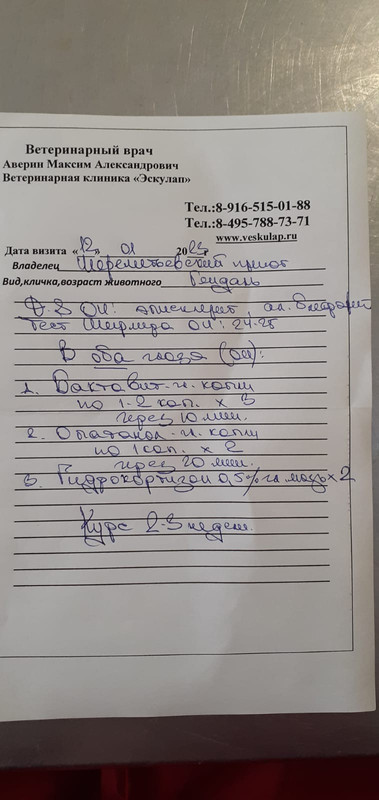 Ветеринарный врач
Аверин Максим Александрович
Ветеринарная клиника «Эскулап»
Тел.:8-916-515-01-88
Тел.:8-495-788-73-71
www.veskulap.ru
Дата визита «12» 01 202
Владелец Шереметьевский приют
Вид,кличка,возраст животного
D.S OU: эписклерит, ал. блефарит
Тест Ширмера OU: 24-25
В оба глаза (OU):
1. Бактавит гл. капли
по 1-2 кап. х 3
через 10 мин.
2. Опатанол гл. капли
по 1 кап. х 2
через 20 мин.
3. Гидрокортизон 0,5% гл. мазь х 2
Курс 2-3 недел.